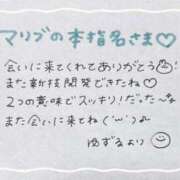 マリブの本指名さま♡
会いに来てくれてありがとう
また新技開発できたね♡
2つの意味でスッキリ!だった〜
また会いに来てね(˙꒳˙)
ゆずるより